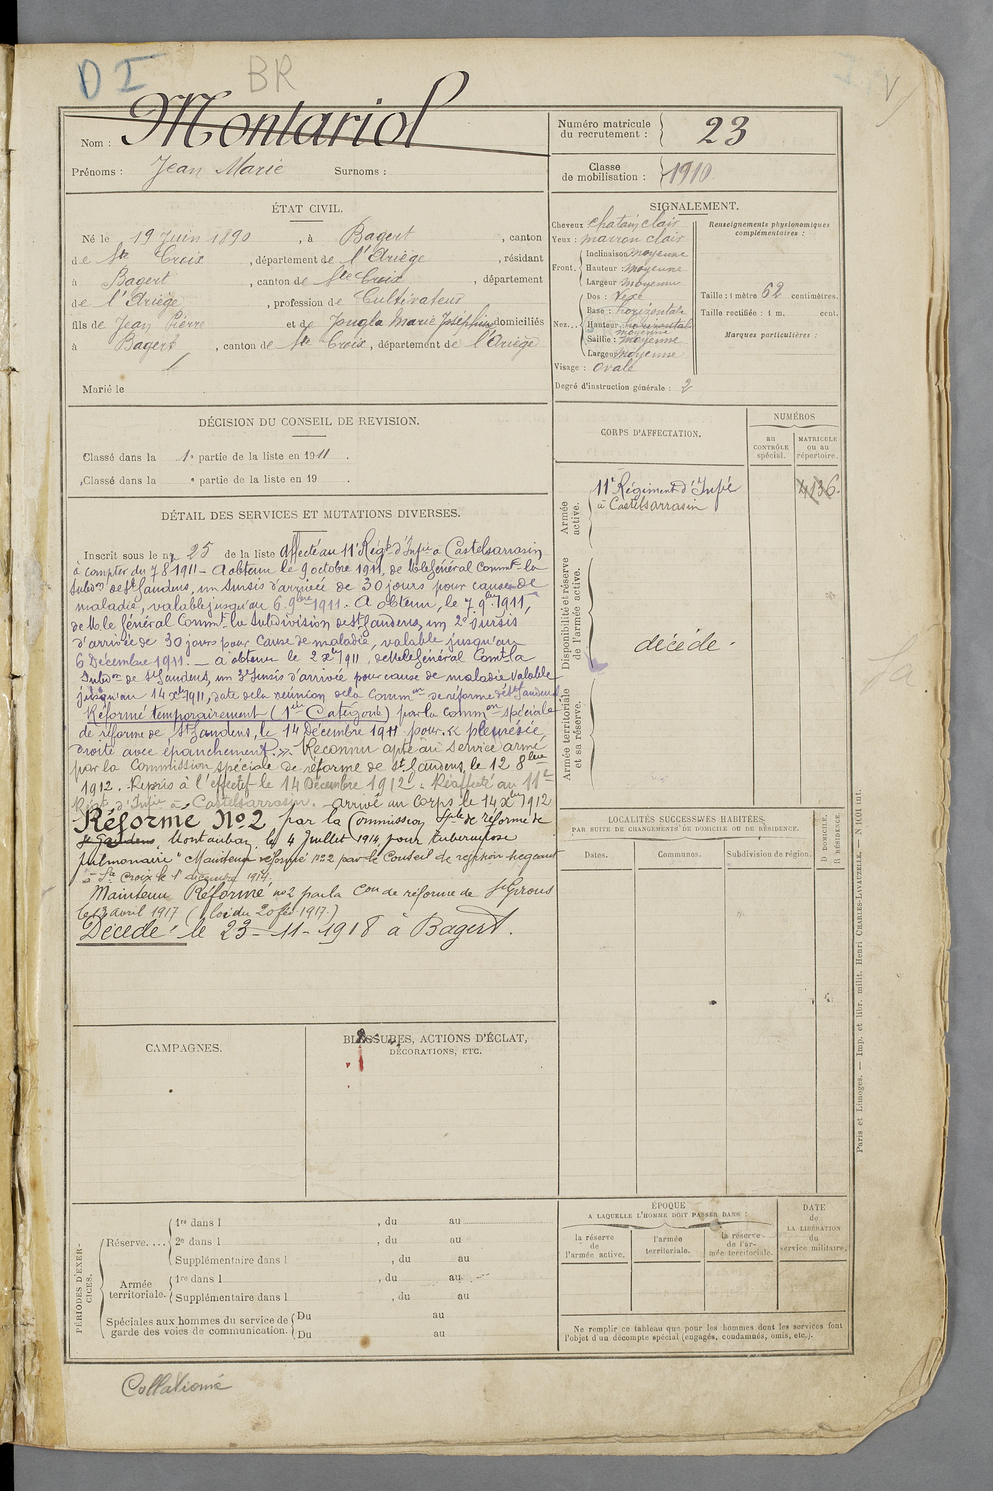 D I BR
V
Nom : Montariol
Prénoms : Jean Marie Surnoms :
Numéro matricule du recrutement : 23
Classe de mobilisation : 1910
ÉTAT CIVIL.
Né le 19 Juin 1890, à Bagert, canton
de Ste Croix, département de l'Ariège, résidant
à Bagert, canton de Ste Croix, département
de l'Ariège, profession de Cultivateur
fils de Jean Pierre et de Pougla Marie Joséphine domiciliés
à Bagert, canton de Ste Croix, département de l'Ariège
Marié le
SIGNALEMENT.
Cheveux chatain clair
Yeux : marron clair
Front. Inclinaison moyenne
Hauteur : moyenne
Largeur moyenne
Nez... Dos : Vexe
Base : horizontale
Hauteur : horizontale moyenne
Saillie : moyenne
Largeur moyenne
Visage : ovale
Degré d'instruction générale : 2
Renseignements physionomiques
complémentaires :
Taille : 1 mètre 62 centimètres.
Taille rectifiée : 1 m. cent.
Marques particulières :
DÉCISION DU CONSEIL DE REVISION.
Classé dans la 1e partie de la liste en 1911.
Classé dans la e partie de la liste en 19 .
CORPS D'AFFECTATION.
NUMÉROS
au CONTRÔLE spécial.
MATRICULE ou au répertoire.
Armée active.
11e Régiment d'Infie
à Castelsarrasin
4136.
Disponibilité et réserve de l'armée active.
décédé.
Armée territoriale et sa réserve.
DÉTAIL DES SERVICES ET MUTATIONS DIVERSES.
Inscrit sous le no 25 de la liste Affecté au 11e Régt d'Infie à Castelsarrasin
à compter du 7 8 1911 - A obtenu le 9 octobre 1911, de Mr le Général Commt la
Subdon de St Gaudens, un sursis d'arrivée de 30 jours pour cause de
maladie, valable jusqu'au 6 9bre 1911. A obtenu, le 7 9bre 1911,
de Mr le Général Commt la Subdivision de St Gaudens, un 2e sursis
d'arrivée de 30 jours pour cause de maladie, valable jusqu'au
6 Décembre 1911. - a obtenu le 2 Xbre 1911, de Mr le Général Comt la
Subdon de St Gaudens, un 3e Sursis d'arrivée pour cause de maladie valable
jusqu'au 14 Xbre 1911, date de la réunion de la Common de réforme de St Gaudens
Réformé temporairement (1ère Catégorie) par la Common spéciale
de réforme de St Gaudens, le 14 Décembre 1911 pour « pleurésie
droite avec épanchement. » Reconnu apte au service armé
par la Commission spéciale de réforme de St Gaudens, le 12 8bre
1912. Repris à l'effectif le 14 Décembre 1912. Réaffecté au 11e
Régt d'Infie à Castelsarrasin. - arrivé au Corps le 14 Xbre 1912
Réformé No 2 par la Commission Sple de réforme de
St Gaudens Montauban le 4 Juillet 1914, pour tuberculose
pulmonaire" Maintenu réformé no 2 par le Conseil de revision
Ste Croix le 1 décembre 1914.
Maintenu Réformé no 2 par la Con de réforme de St Girons
le 13 avril 1917 (loi du 20 fév 1917.)
Décédé le 23-11-1918 à Bagert.
LOCALITÉS SUCCESSIVES HABITÉES
PAR SUITE DE CHANGEMENTS DE DOMICILE OU DE RÉSIDENCE.
Dates. Communes. Subdivision de région. D DOMICILE. R RÉSIDENCE.
CAMPAGNES.
BLESSURES, ACTIONS D'ÉCLAT,
DÉCORATIONS, ETC.
PÉRIODES D'EXERCICES.
Réserve.... 1re dans l , du au
2e dans l , du au
Supplémentaire dans l , du au
Armée territoriale. 1re dans l , du au
Supplémentaire dans l , du au
Spéciales aux hommes du service de garde des voies de communication. Du au
Du au
ÉPOQUE
A LAQUELLE L'HOMME DOIT PASSER DANS :
la réserve de l'armée active.
l'armée territoriale.
la réserve de l'armée territoriale.
DATE de LA LIBÉRATION du service militaire.
Ne remplir ce tableau que pour les hommes dont les services font
l'objet d'un décompte spécial (engagés, condamnés, omis, etc.).
Paris et Limoges. — Imp. et libr. milit. Henri CHARLES-LAVAUZELLE. — N 1001 int.
Collationné